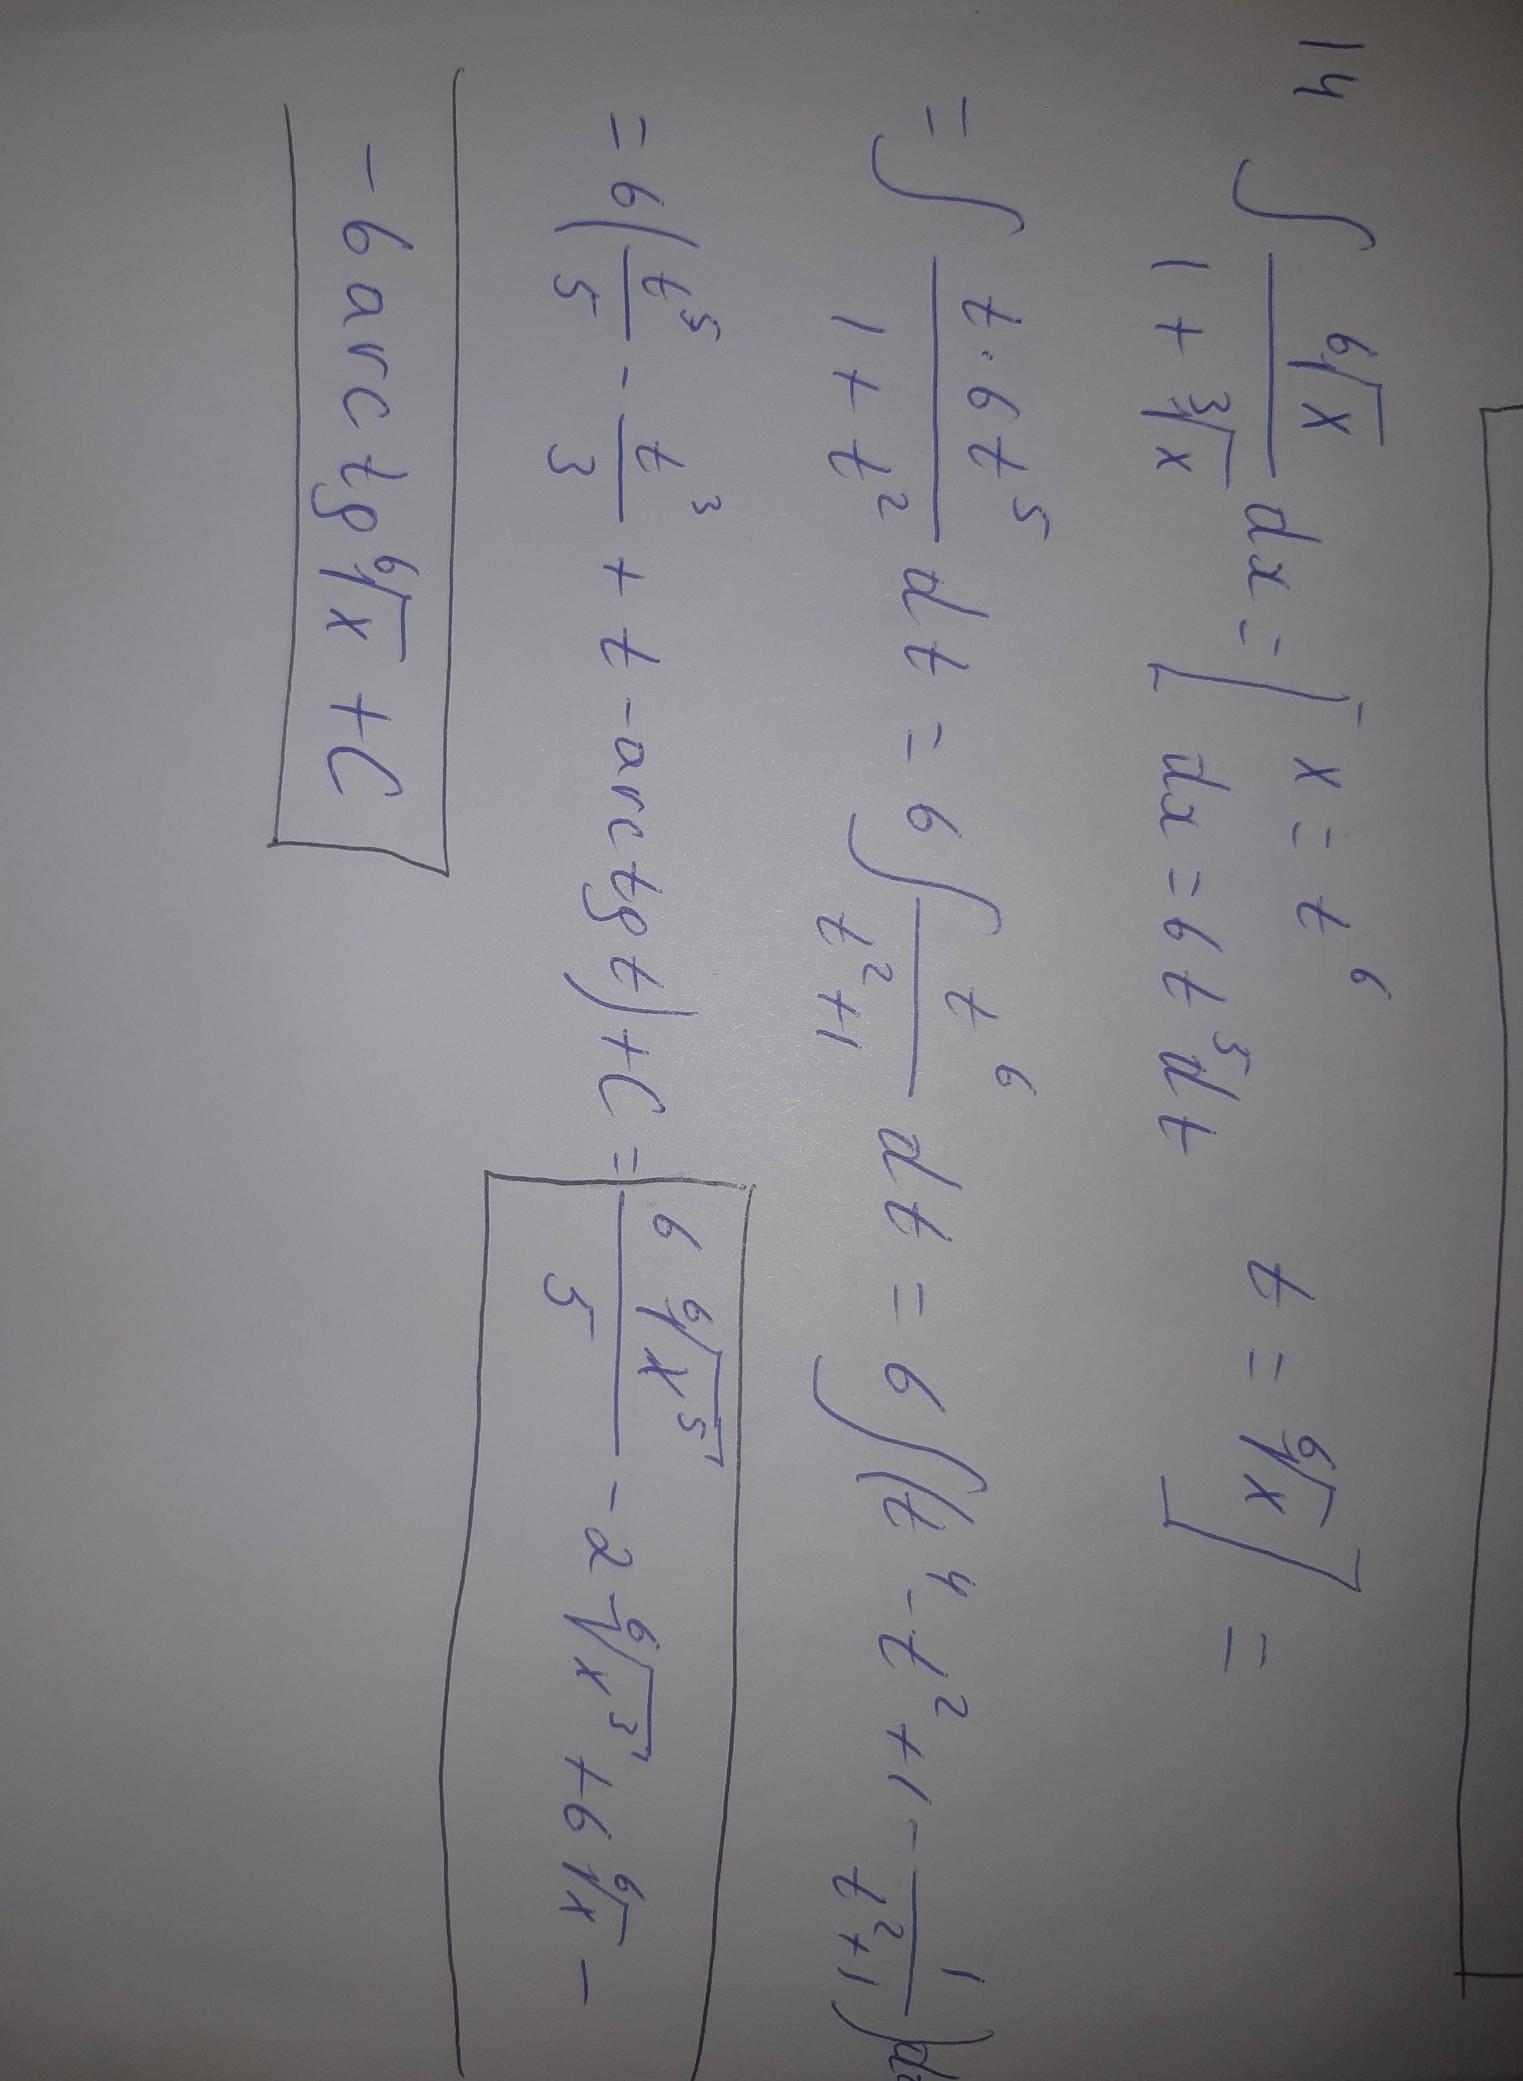 14 ∫ ⁶√x / (1 + ³√x) dx = [ x = t⁶ t = ⁶√x
dx = 6t⁵dt ] =
= ∫ t·6t⁵ / (1 + t²) dt = 6 ∫ t⁶ / (t²+1) dt = 6 ∫ (t⁴ - t² + 1 - 1/(t²+1)) dt
= 6(t⁵/5 - t³/3 + t - arctg t) + C = 6 ⁶√x⁵ / 5 - 2 ⁶√x³ + 6 ⁶√x -
- 6 arctg ⁶√x + C